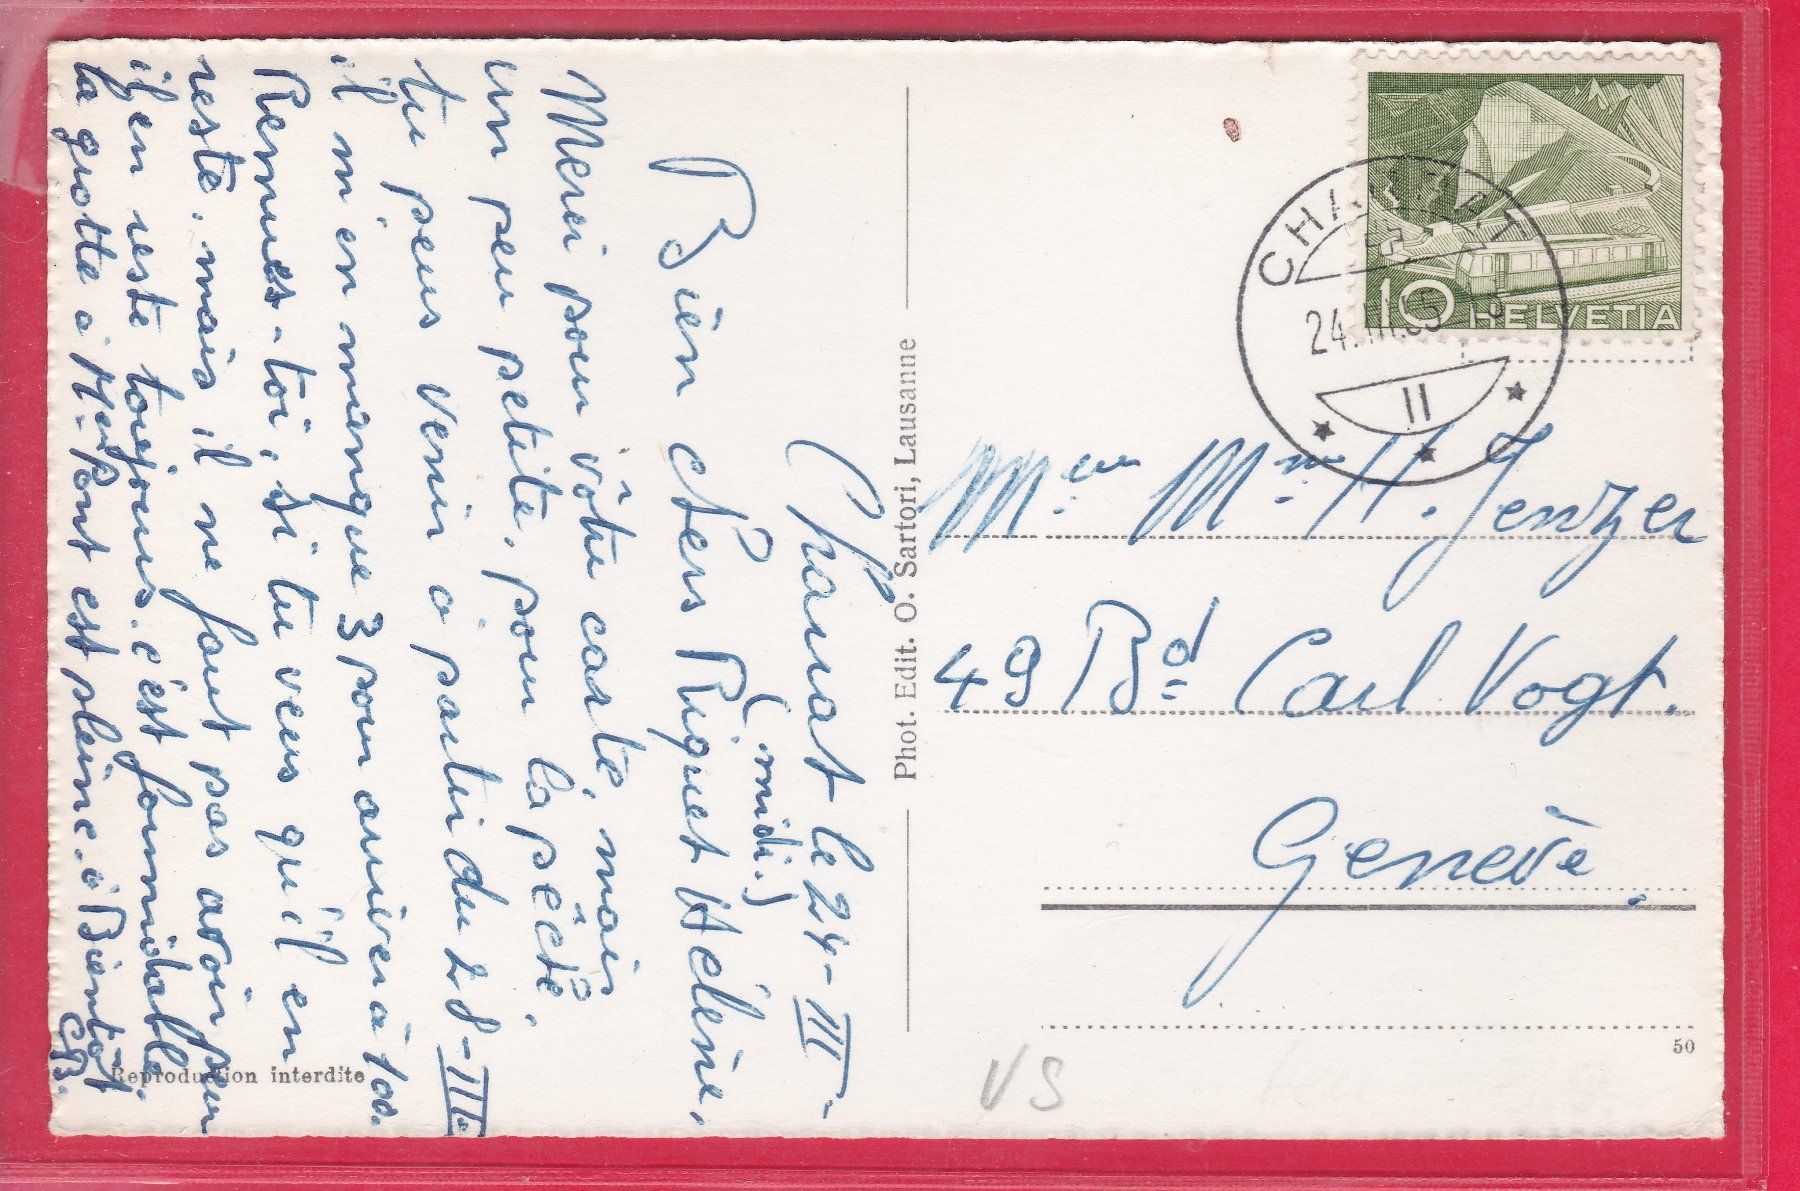 Charrat le 24-III-
(midi.)
Bien chers Riquet Hélène,
Merci pour vôtre carte, mais
un peu petite, pour la pêche,
tu peus venir à partir du 28-III
il m'en manque 3 pour arriver à 100.
Remues-toi, si tu veus qu'il en
reste, mais il ne faut pas avoir peur
il en reste toujours. c'est formidable.
la grotte à est pleine. à Bientôt
CB.
Reproduction interdite
Phot. Edit. O. Sartori, Lausanne
CHARRAT
24.III.
II
10 HELVETIA
H. Jenzer
49 Bd Carl Vogt.
Genève.
50
VS